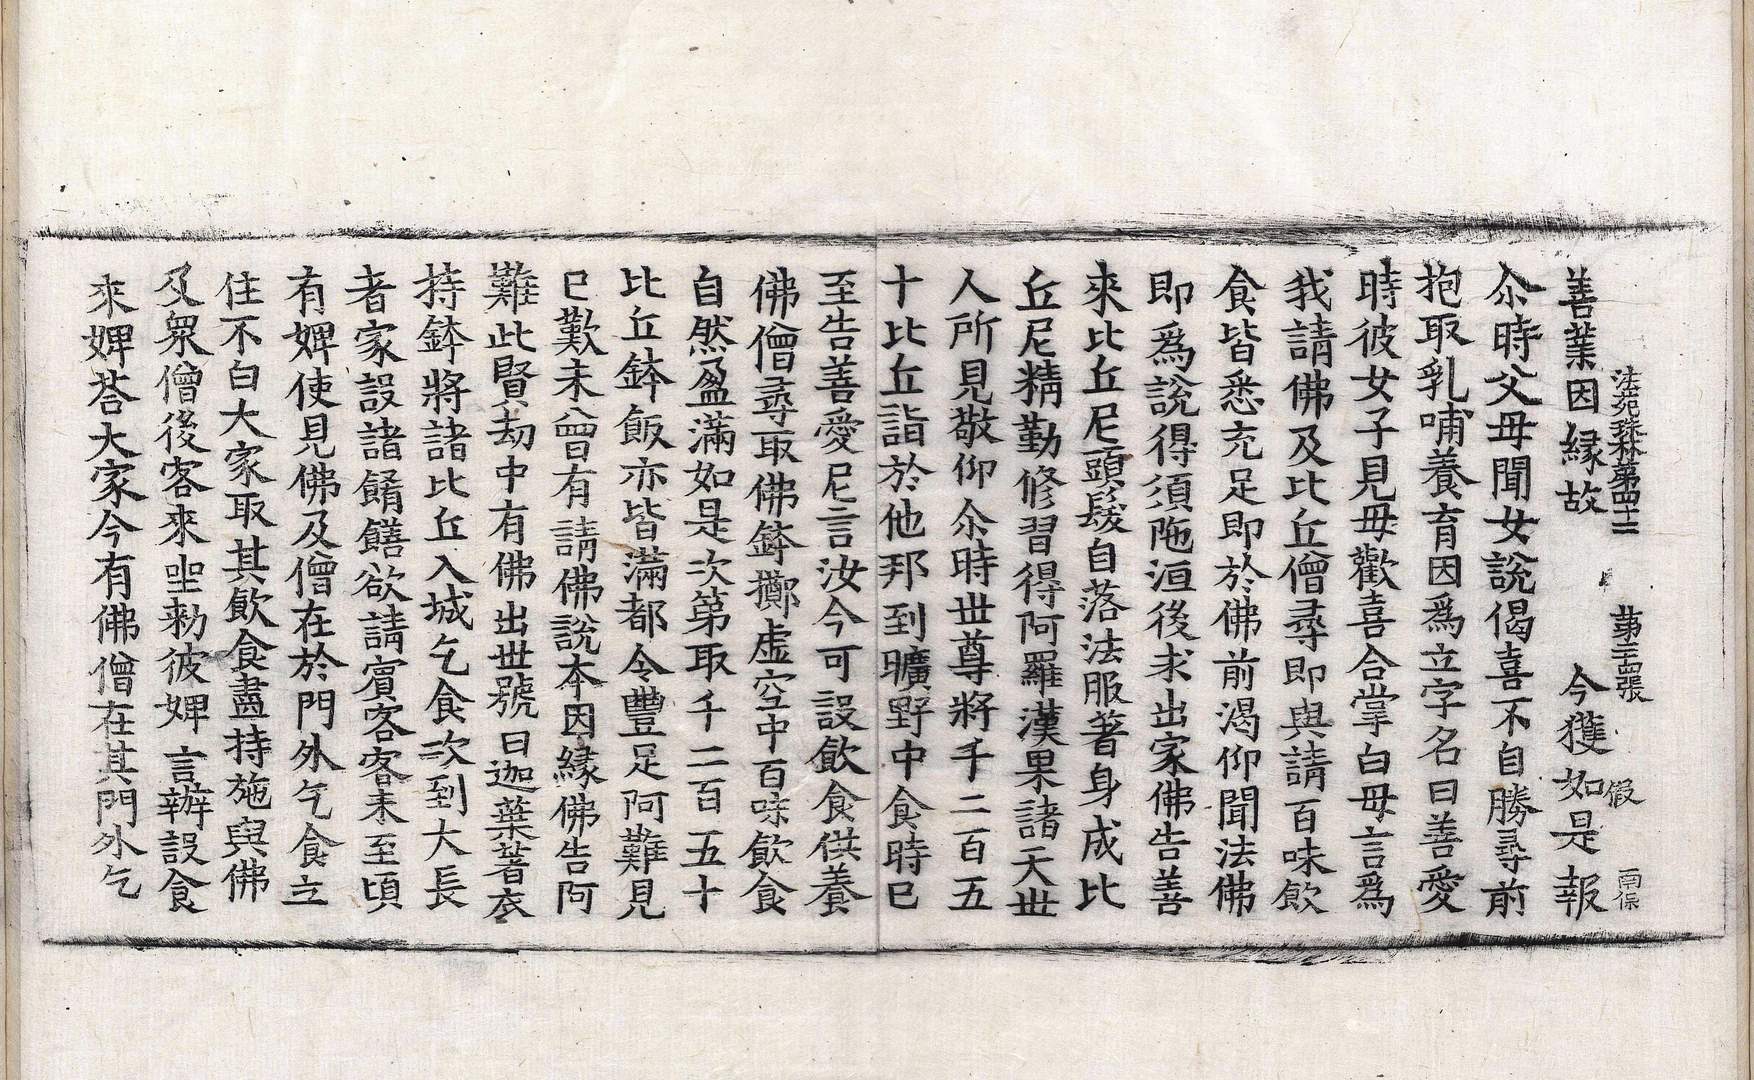 法苑珠林第四十二 第三四張 假 南保
善業因緣故 今獲如是報
尒時父母聞女說偈喜不自勝尋前
抱取乳哺養育因爲立字名曰善愛
時彼女子見母歡喜合掌白母言爲
我請佛及比丘僧尋即與請百味飮
食皆悉充足即於佛前渴仰聞法佛
即爲說得須陁洹後求出家佛告善
來比丘尼頭髮自落法服著身成比
丘尼精勤修習得阿羅漢果諸天世
人所見敬仰尒時世尊將千二百五
十比丘詣於他邦到曠野中食時巳
至告善愛尼言汝今可設飮食供養
佛僧尋取佛鉢擲虛空中百味飮食
自然盈滿如是次第取千二百五十
比丘鉢飯亦皆滿都令豐足阿難見
巳歎未曾有請佛說本因緣佛告阿
難此賢劫中有佛出世號曰迦葉著衣
持鉢將諸比丘入城乞食次到大長
者家設諸餚饍欲請賓客客未至頃
有婢使見佛及僧在於門外乞食立
住不白大家取其飮食盡持施與佛
及衆僧後客來坐勑彼婢言辦設食
來婢荅大家今有佛僧在其門外乞